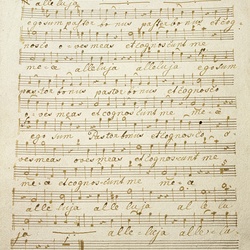 alleluja
ego sum pastor bonus pastor bonus et cog
nosco oves meas et cognoscunt me
me a alleluja alleluja ego sum
pastor bonus pastor bonus et cognosco
oves meas et cognoscunt me me a
ego sum Pastor bonus et cognosco o
ves meas oves meas et cognoscunt me
me a et cognoscunt me me a
alle alleluja alleluja al le lu
ja alleluja alleluja